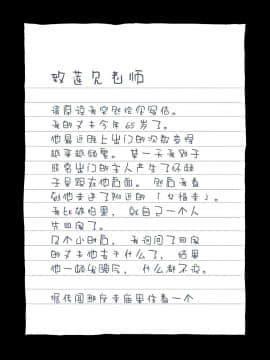 致莲见老师
请原谅我突然给你写信。
我的丈夫今年65岁了。
他最近晚上出门的次数变得
越来越频繁。某一天我对于
听名出门的丈夫产生了怀疑
于是跟在他后面。然后看着
他走了附近的「女福寺」。
我比较怕黑，就自己一个人
先回家了。
几个小时后，我询问了回家
的丈夫他去干什么了，结果
他一副出嘴尺，什么都不说。
据传闻那座寺庙里住着一个